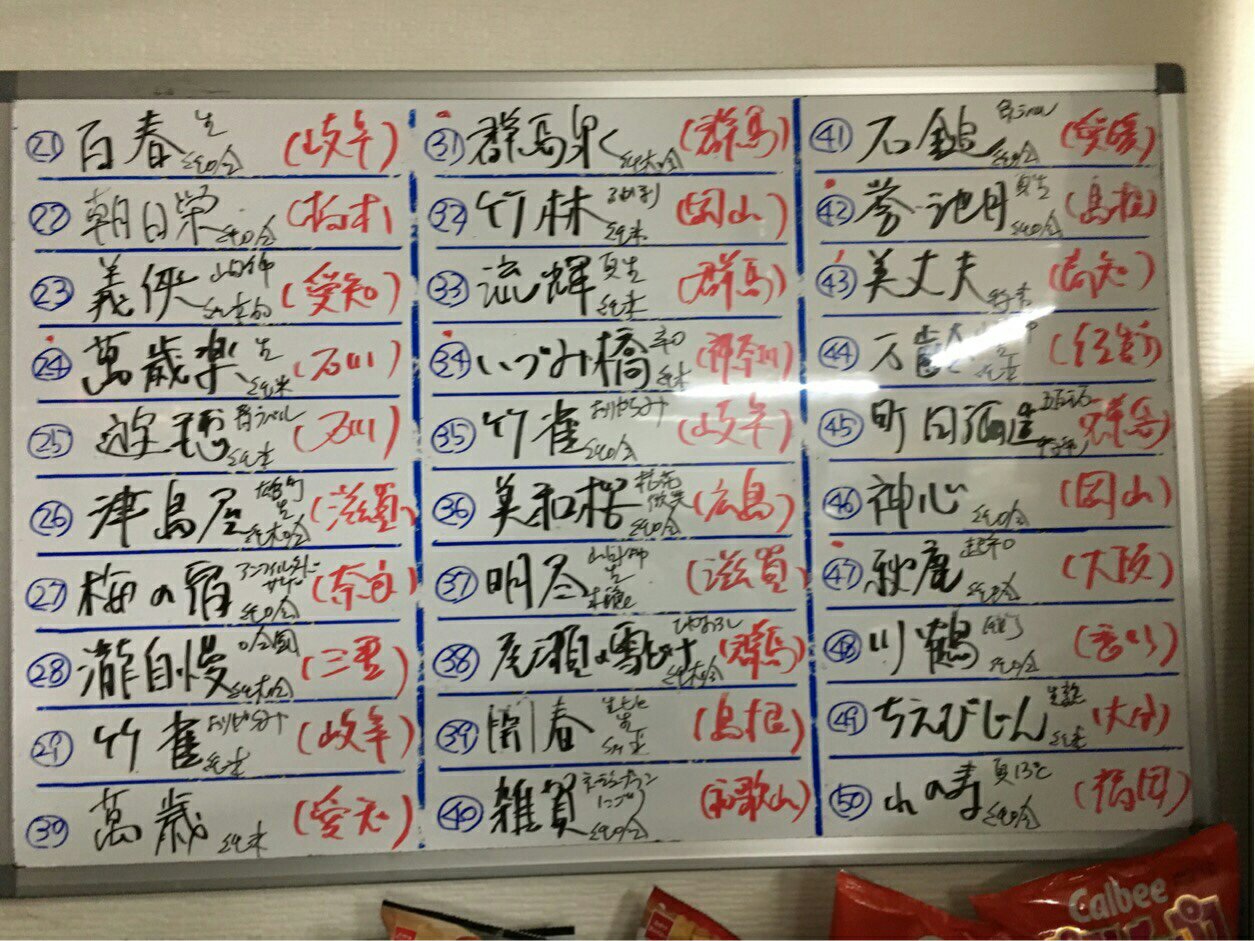 ㉑ 百春 生 純吟 (岐阜)
㉒ 朝日榮 純吟 (栃木)
㉓ 義侠 山田錦 (愛知)
㉔ 萬歳楽 生 純米 (石川)
㉕ 遊穂 純米 (石川)
㉖ 津島屋 雄町 生 純大吟 (滋賀)
㉗ 梅の宿 アンフィルタードサケ 純吟 (奈良)
㉘ 瀧自慢 純大吟 (三重)
㉙ 竹雀 おりがらみ 純米 (岐阜)
㉚ 萬歳 純米 (愛知)
㉛ 群馬泉 純大吟 (群馬)
㉜ 竹林 純米 (岡山)
㉝ 流輝 夏生 純米 (群馬)
㉞ いづみ橋 辛口 純米 (神奈川)
㉟ 竹雀 おりがらみ 純吟 (岐阜)
㊱ 美和桜 純吟 (広島)
㊲ 明尽 山田錦 生 (滋賀)
㊳ 尾瀬の雪どけ ひやおろし 純大吟 (群馬)
㊴ 開春 生 純米 (島根)
㊵ 雑賀 純吟 (和歌山)
㊶ 石鎚 純吟 (愛媛)
㊷ 誉池月 夏生 純吟 (島根)
㊸ 美丈夫 (高知)
㊹ 万齢 (佐賀)
㊺ 町田酒造 五百万石 (群馬)
㊻ 神心 純吟 (岡山)
㊼ 秋鹿 超辛口 (大阪)
㊽ 川鶴 純吟 (香川)
㊾ ちえびじん 純米 (大分)
㊿ 山の寿 夏13℃ 純吟 (福岡)
Calbee